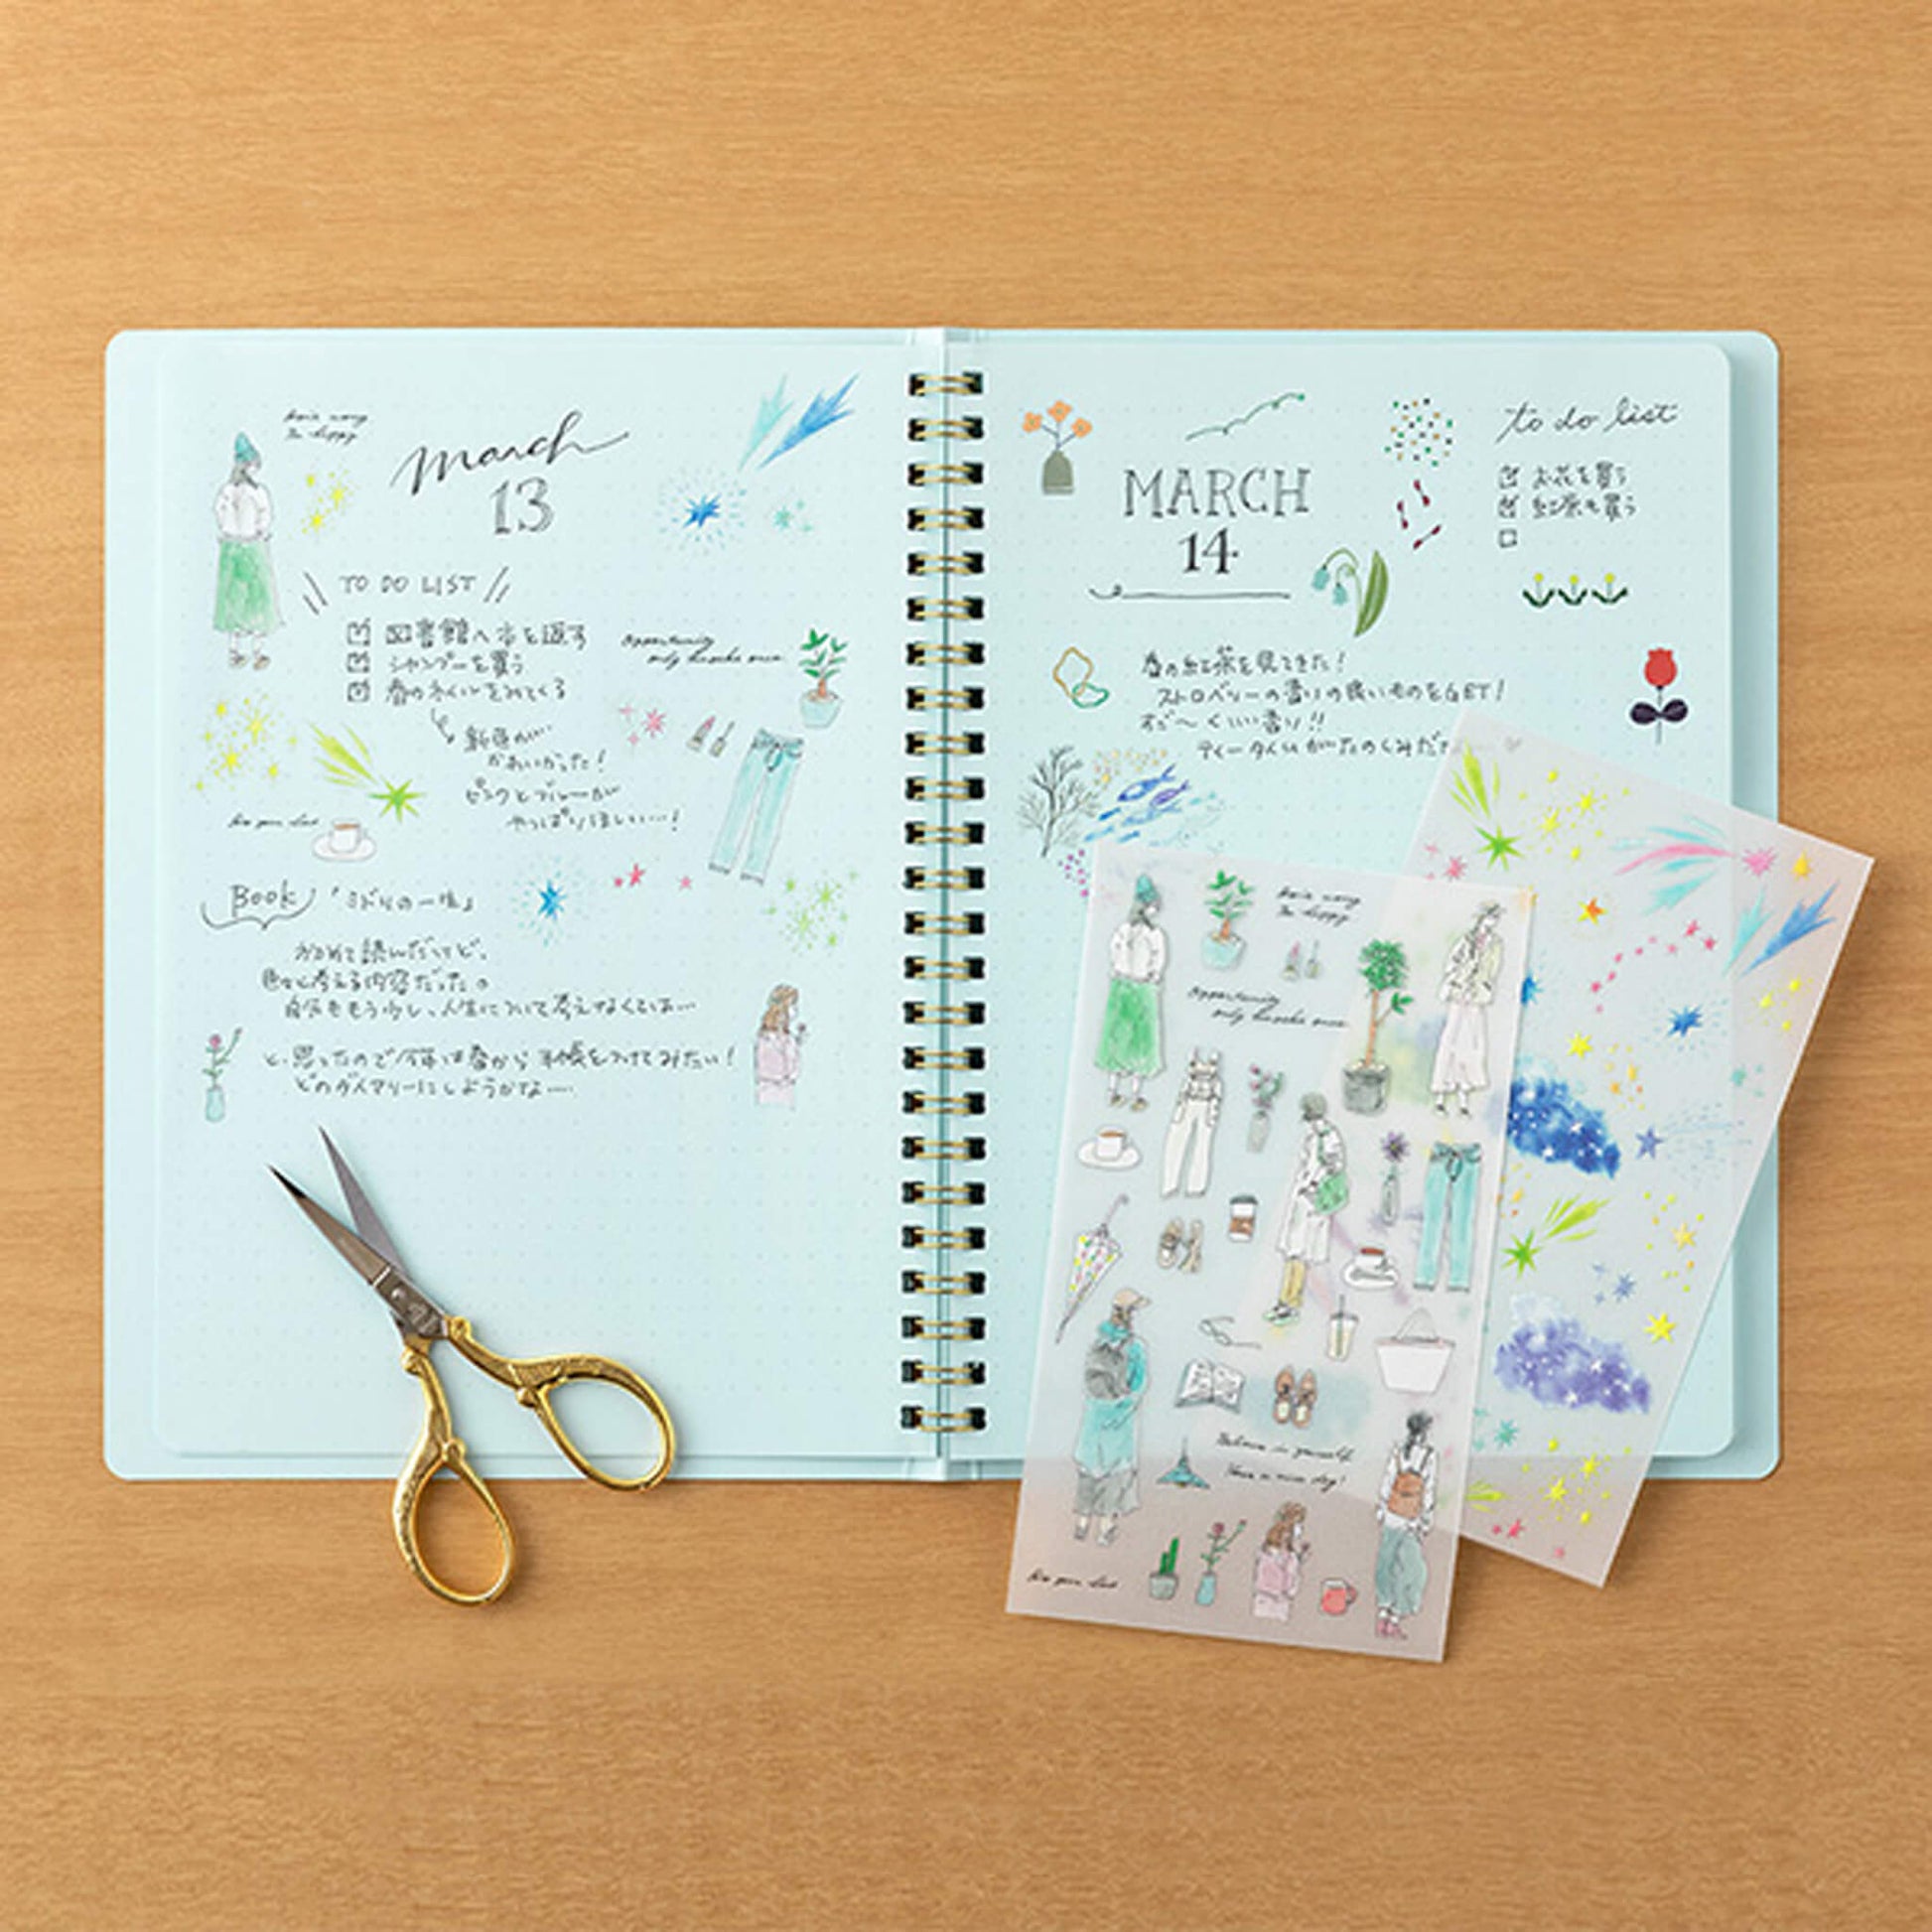 March
13
TO DO LIST
図書館へ本を返す
シャンプーを買う
春のネイルをみてくる
新色が…
かわいかった!
ピンクとブルーが
やっぱりほしい…!
Book 「みどりの一生」
かりめて読んだけど、
色々と考える内容だった。
自分ももう少し、人生について考えなくちゃ…
と、思ったので今年は春から手帳をつけてみたい!
どのダイアリーにしようかな…
Opportunity
only knocks once.
MARCH
14
to do list
お花を買う
紅茶を買う
春の紅茶を見てきた!
ストロベリーの香りの良いものをGET!
すご〜くいい香り!!
ティータイムがたのしみだ
Opportunity
only knocks once.
Believe in yourself.
Have a nice day!